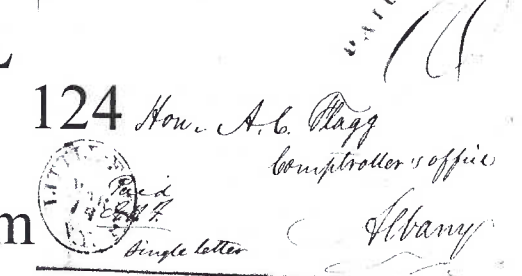 PAID
124
Hon. A. C. Flagg
Comptroller's office
Albany
LITTLE
Paid
single letter
m